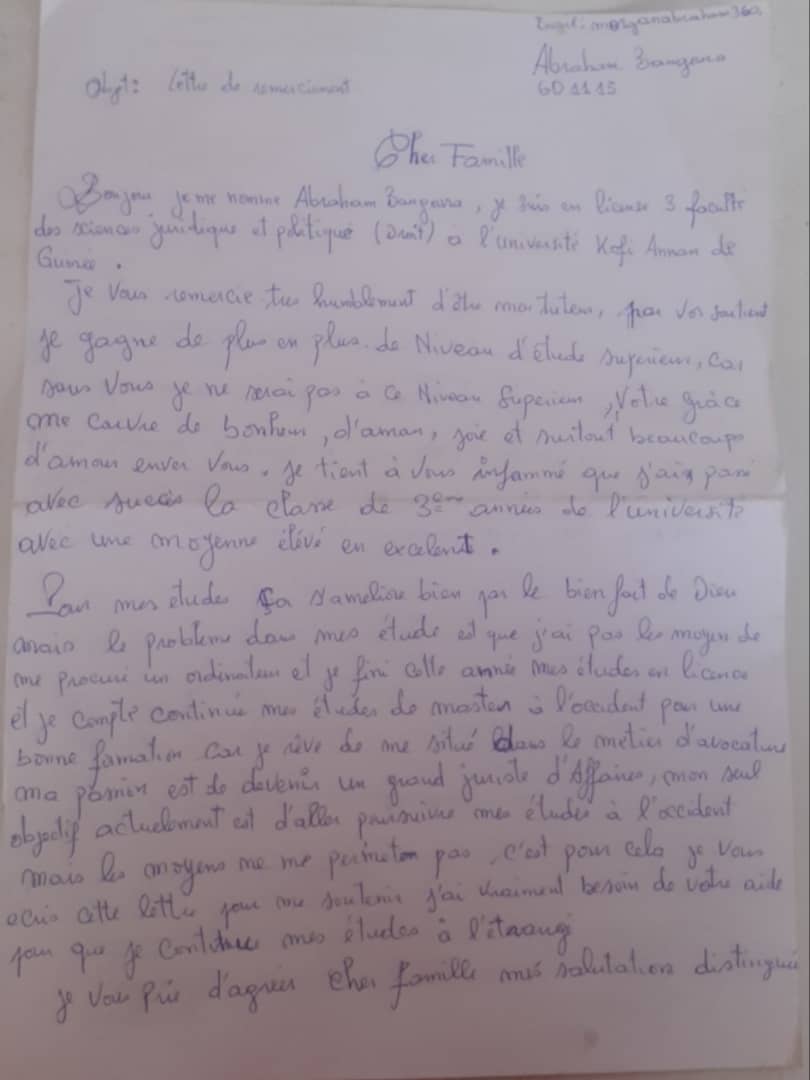 morganabraham360,
Abraham Bangana
601115
Objet: lettre de remerciement
Cher Famille
Bonjou je me nomme Abraham Bangana, je suis en licence 3 faculté
des sciences juridique et politique (Droit) à l'université Kofi Annan de
Guinée.
Je Vous remercie tres humblement d'être mon tuteur, par vos soutient
je gagne de plus en plus de Niveau d'étude superieur, Car
sans Vous je ne serai pas à ce Niveau Superieur, Votre grâce
me couvre de bonheur, d'aman, joie et surtout beaucoups
d'amour enver Vous. Je tient à Vous informmé que j'ai passé
avec succès la classe de 3ème années de l'université
avec une moyenne élévé en excelent.
Pour mes études ça s'ameliore bien par le bien fait de Dieu
mais le problème dans mes étude est que j'ai pas les moyen de
me procuré un ordinateur et je fini cette année mes études en licence
et je compte continué mes études de master à l'occident pour une
bonne formation car je rêve de me situé dans le metier d'avocature
ma passion est de devenir un grand juriste d'Affaires, mon seul
objectif actuelement est d'aller poursuivre mes études à l'occident
mais les moyens ne me permeton pas, c'est pour cela je vous
ecris cette lettre pour me soutenir j'ai vraiment besoin de votre aide
pour que je continue mes études à l'étrangé
je vous prie d'agréer cher famille mes salutation distingué